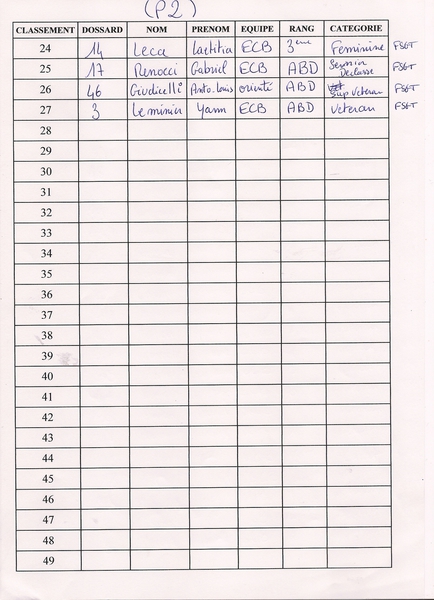 (P2)
CLASSEMENT DOSSARD NOM PRENOM EQUIPE RANG CATEGORIE
24 14 Lecca Laetitia ECB 3ème Feminine FSGT
25 17 Renocci Gabriel ECB ABD Senior Declasse FSGT
26 46 Giudicelli Anto-Louis ABD Sup Veteran FSGT
27 3 Leminier Yann ECB ABD Veteran FSGT
28
29
30
31
32
33
34
35
36
37
38
39
40
41
42
43
44
45
46
47
48
49